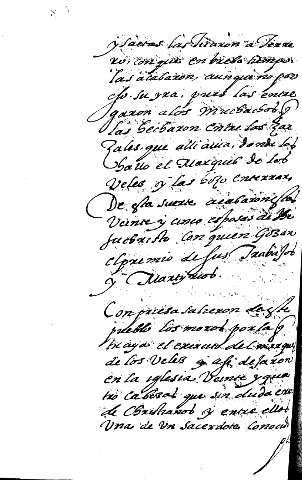 y saetas las tiraron a terre
ro, con que en breve tiempo
las acabaron, aunque no por
esso su yra, pues las entre
garon a los muchachos y
las hecharon entre los Zar
zales que alli avia, donde las
hallo el Marques de los
Veles y las hizo enterrar,
De esta suerte acabaron estas
Veinte y cinco esposas de Je
suchristo con quien Gozan
el premio de sus Trabajos
y Martyrios.
Con priesa salieron de este
pueblo los moros, por la q
traya el exercito del marques
de los Veles y assi dejaron
en la iglesia Veinte y qua
tro cabezas que sin duda eran
de Christianos y entre ellas
una de un sacerdote conocid